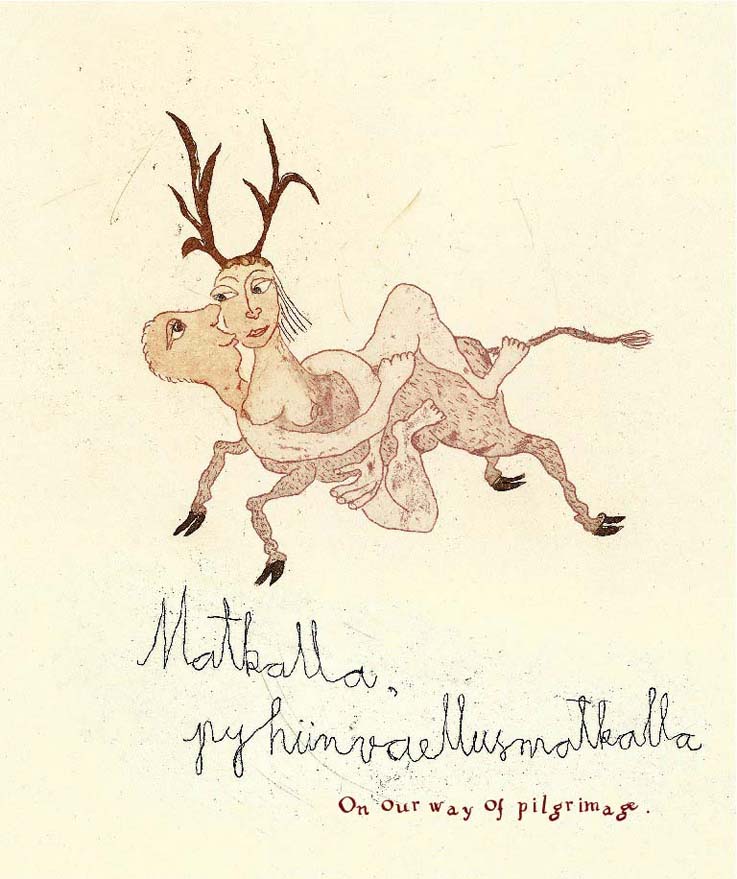 Matkalla,
pyhiinvaellusmatkalla
On our way of pilgrimage.